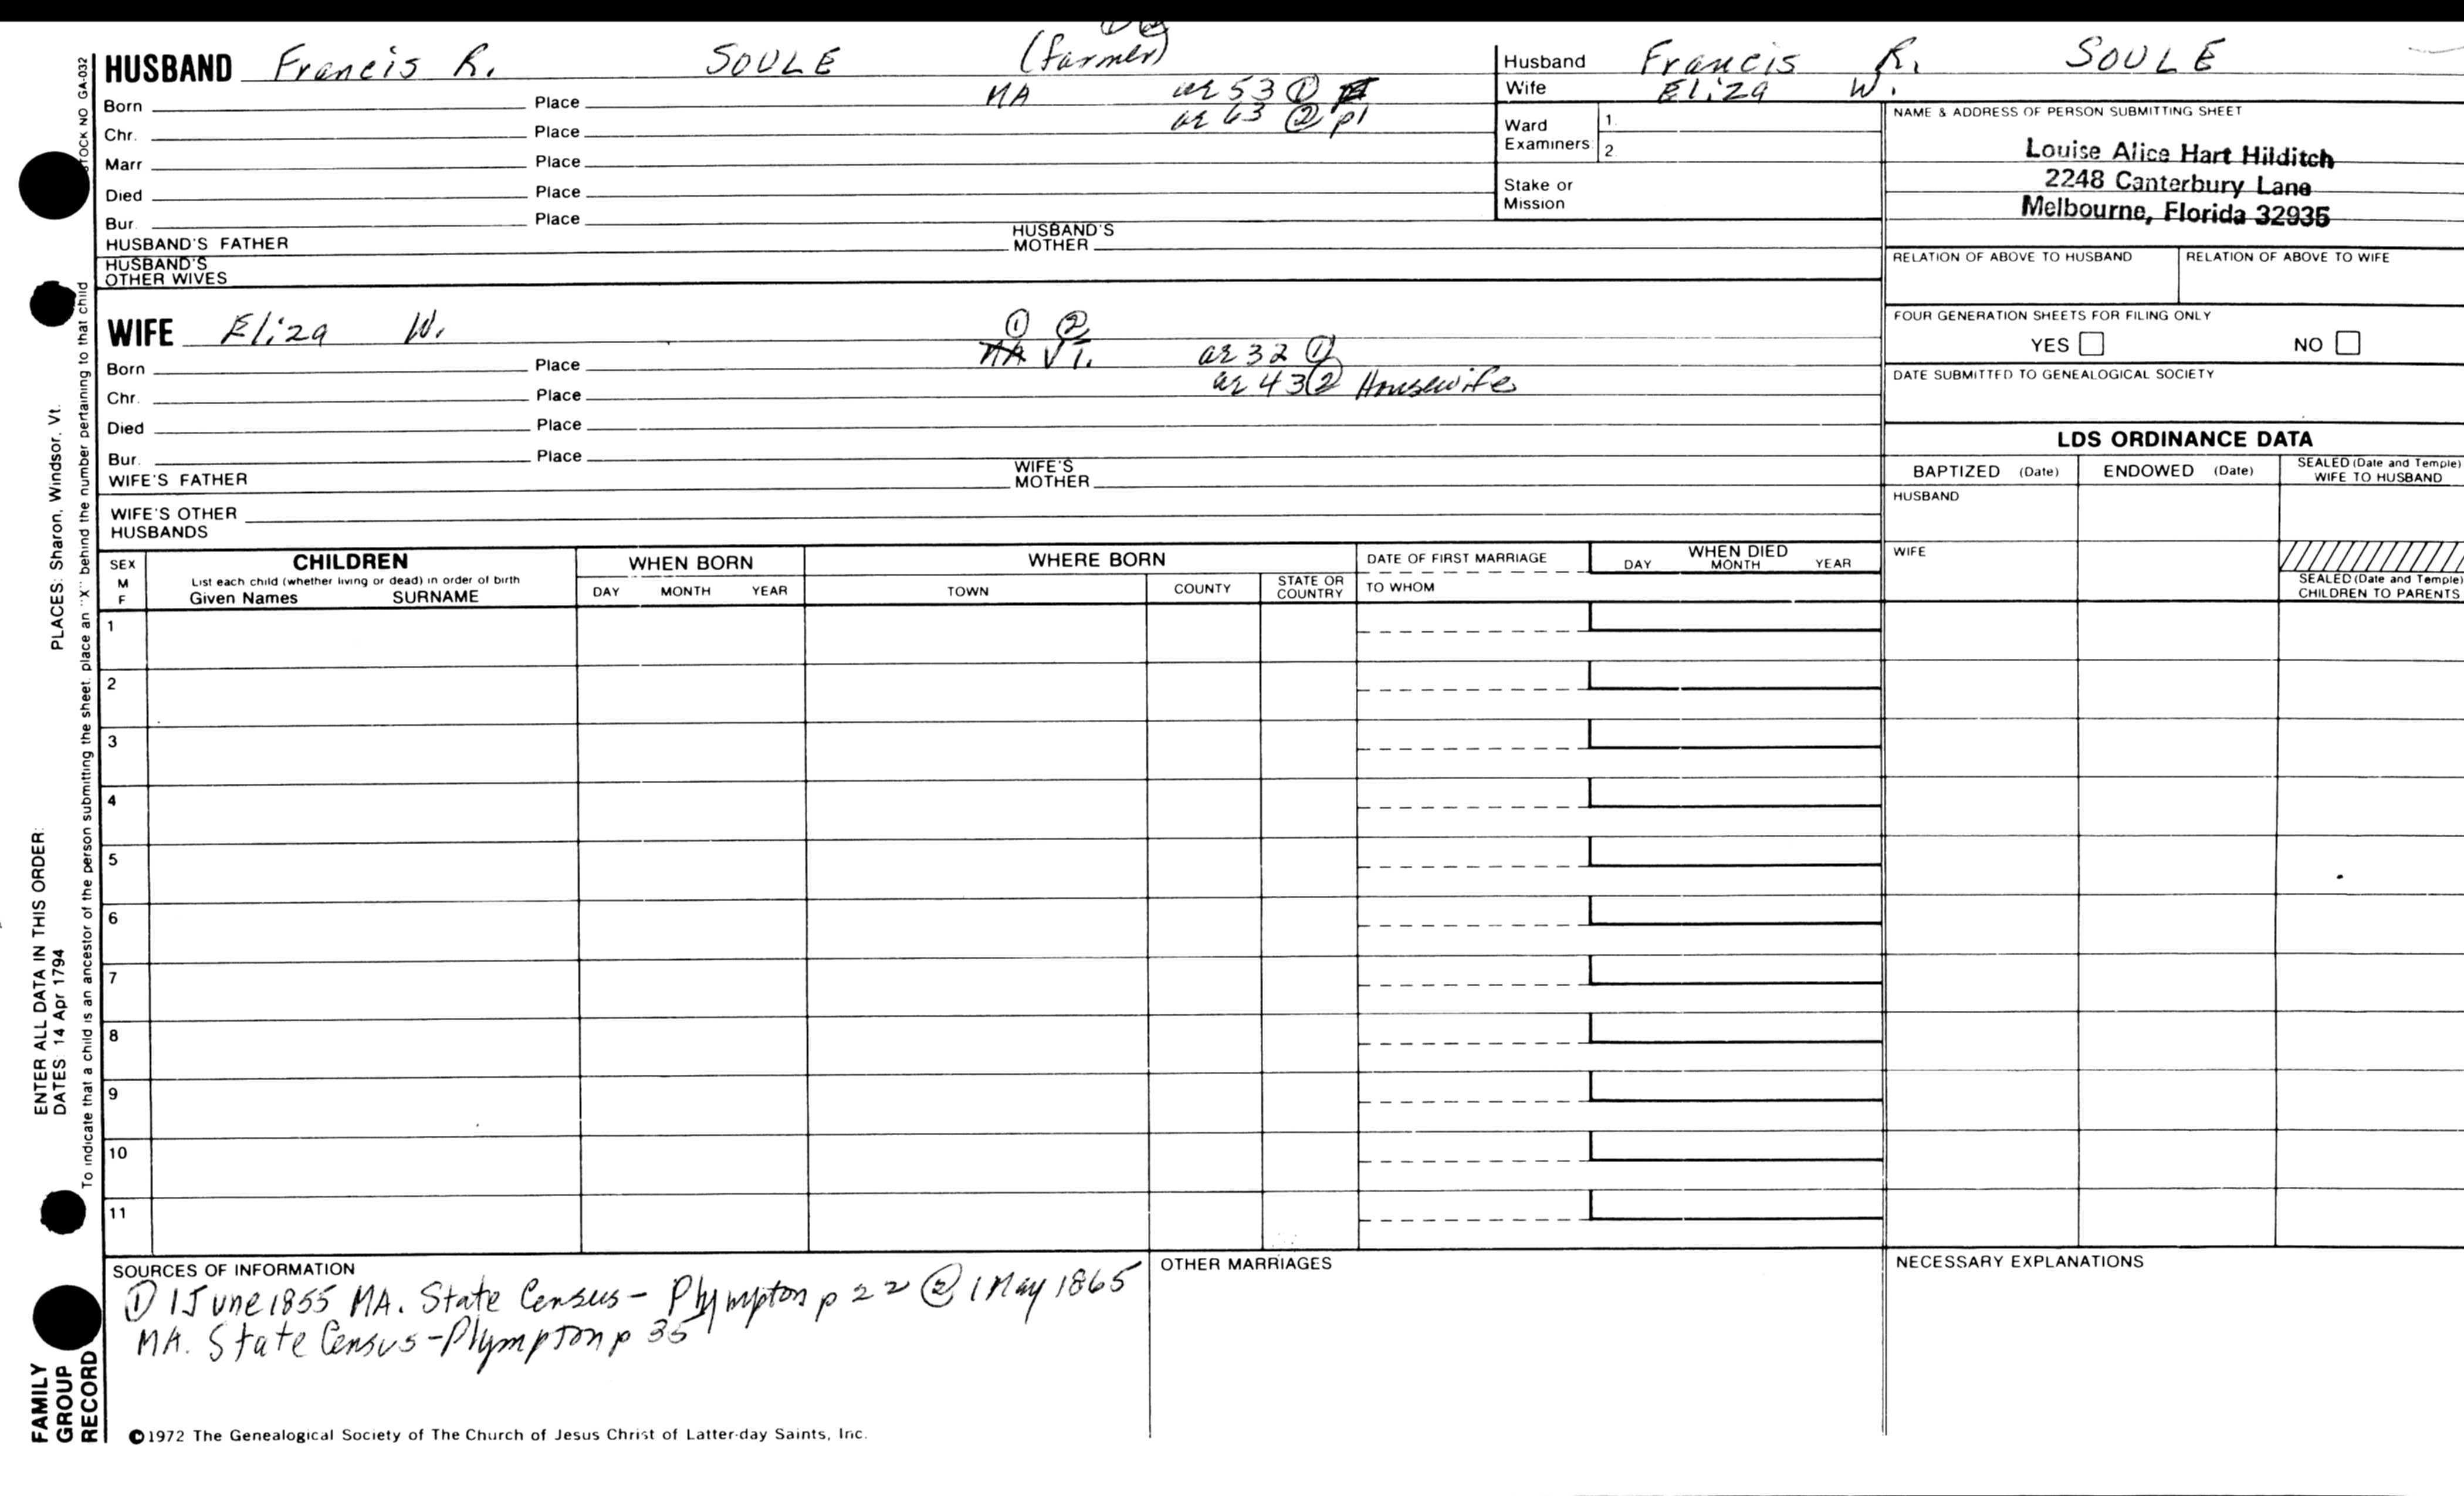 HUSBAND Francis R. SOULE (farmer)
Born Place MA ae 53 ①
Chr. Place ae 63 ② p1
Marr Place
Died Place
Bur. Place
HUSBAND'S FATHER HUSBAND'S MOTHER
HUSBAND'S OTHER WIVES
WIFE Eliza W. ① ②
Born Place MA VT. ae 32 ①
Chr. Place ae 43 ② Housewife
Died Place
Bur. Place
WIFE'S FATHER WIFE'S MOTHER
WIFE'S OTHER HUSBANDS
Husband Francis R. SOULE
Wife Eliza W.
Ward Examiners 1.
2.
Stake or Mission
NAME & ADDRESS OF PERSON SUBMITTING SHEET
Louise Alice Hart Hilditch
2248 Canterbury Lane
Melbourne, Florida 32935
RELATION OF ABOVE TO HUSBAND RELATION OF ABOVE TO WIFE
FOUR GENERATION SHEETS FOR FILING ONLY
YES NO
DATE SUBMITTED TO GENEALOGICAL SOCIETY
LDS ORDINANCE DATA
BAPTIZED (Date) ENDOWED (Date) SEALED (Date and Temple) WIFE TO HUSBAND
HUSBAND
WIFE
SEALED (Date and Temple) CHILDREN TO PARENTS
SEX M F
CHILDREN
List each child (whether living or dead) in order of birth
Given Names SURNAME
WHEN BORN
DAY MONTH YEAR
WHERE BORN
TOWN COUNTY STATE OR COUNTRY
DATE OF FIRST MARRIAGE
TO WHOM
WHEN DIED
DAY MONTH YEAR
1
2
3
4
5
6
7
8
9
10
11
SOURCES OF INFORMATION
① 1 June 1855 MA. State Census - Plympton p 22 ② 1 May 1865
MA. State Census - Plympton p 35
OTHER MARRIAGES
NECESSARY EXPLANATIONS
©1972 The Genealogical Society of The Church of Jesus Christ of Latter-day Saints, Inc.
FAMILY
GROUP
RECORD
ENTER ALL DATA IN THIS ORDER:
DATES: 14 Apr 1794
PLACES: Sharon, Windsor, Vt.
To indicate that a child is an ancestor of the person submitting the sheet, place an "X" behind the number pertaining to that child
STOCK NO GA-032